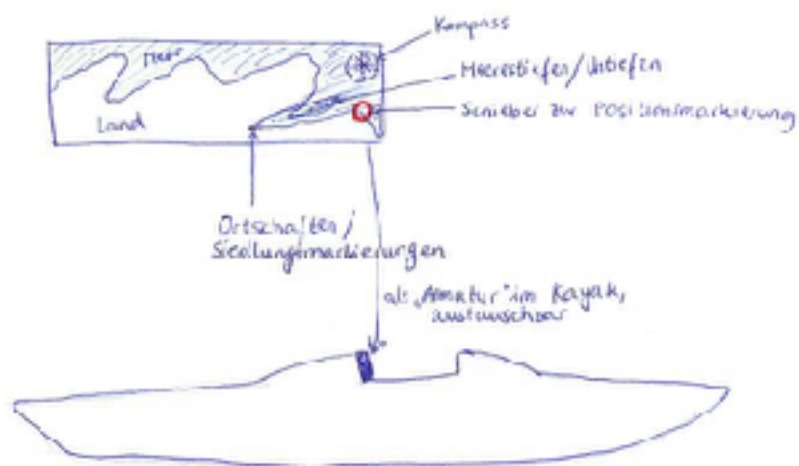 Kompass
Meer
Meerestiefen/Untiefen
Schieber zur Positionsmarkierung
Land
Ortschaften/
Siedlungsmarkierungen
als „Armatur" im Kayak,
austauschbar